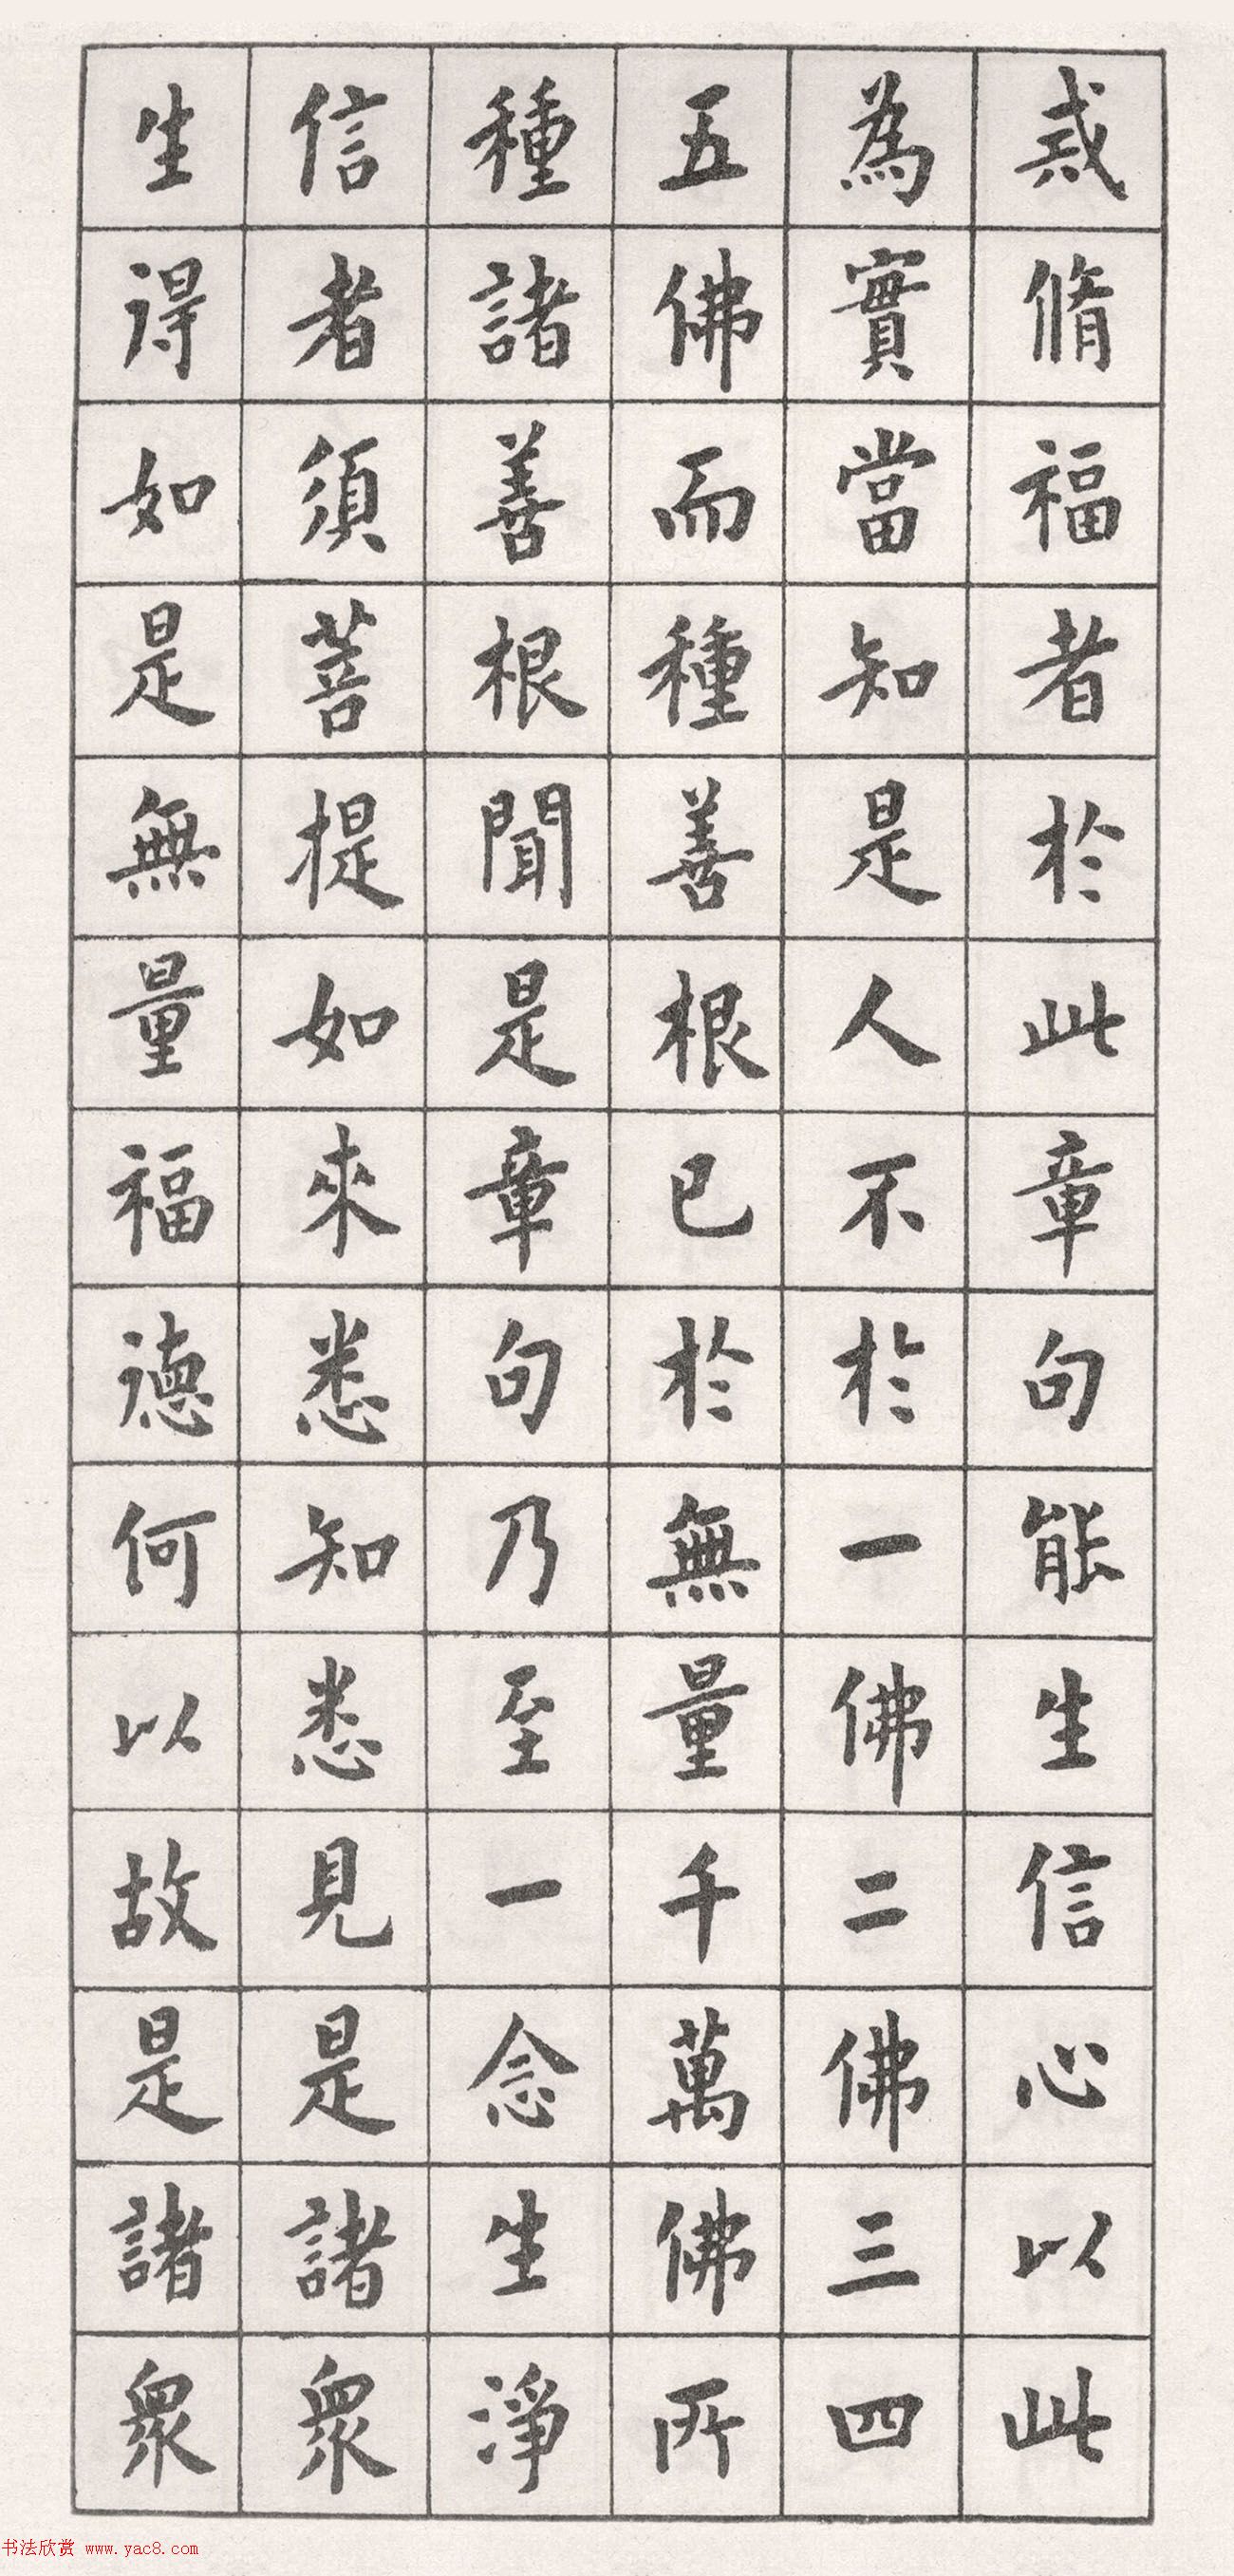 戒脩福者於此章句能生信心以此
為實當知是人不於一佛二佛三四
五佛而種善根已於無量千萬佛所
種諸善根聞是章句乃至一念生淨
信者須菩提如來悉知悉見是諸衆
生得如是無量福德何以故是諸衆
书法欣赏 www.yac8.com